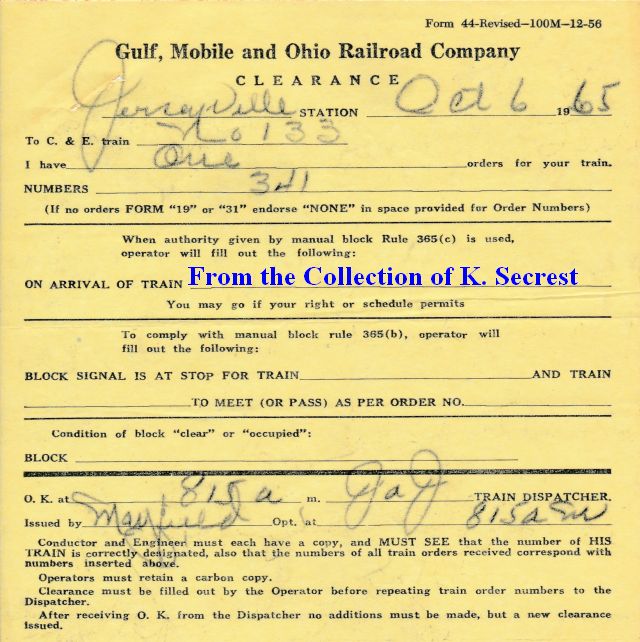 Form 44-Revised-100M-12-56
Gulf, Mobile and Ohio Railroad Company
CLEARANCE
Jerseyville STATION Oct 6 1965
To C. & E. train No 133
I have One orders for your train.
NUMBERS 341
(If no orders FORM "19" or "31" endorse "NONE" in space provided for Order Numbers)
When authority given by manual block Rule 365(c) is used,
operator will fill out the following:
ON ARRIVAL OF TRAIN From the Collection of K. Secrest
You may go if your right or schedule permits
To comply with manual block rule 365(b), operator will
fill out the following:
BLOCK SIGNAL IS AT STOP FOR TRAIN AND TRAIN
TO MEET (OR PASS) AS PER ORDER NO.
Condition of block "clear" or "occupied":
BLOCK
O. K. at 815 a m. JaJ TRAIN DISPATCHER.
Issued by Mayfield Opt. at 815a m
Conductor and Engineer must each have a copy, and MUST SEE that the number of HIS
TRAIN is correctly designated, also that the numbers of all train orders received correspond with
numbers inserted above.
Operators must retain a carbon copy.
Clearance must be filled out by the Operator before repeating train order numbers to the
Dispatcher.
After receiving O. K. from the Dispatcher no additions must be made, but a new clearance
issued.